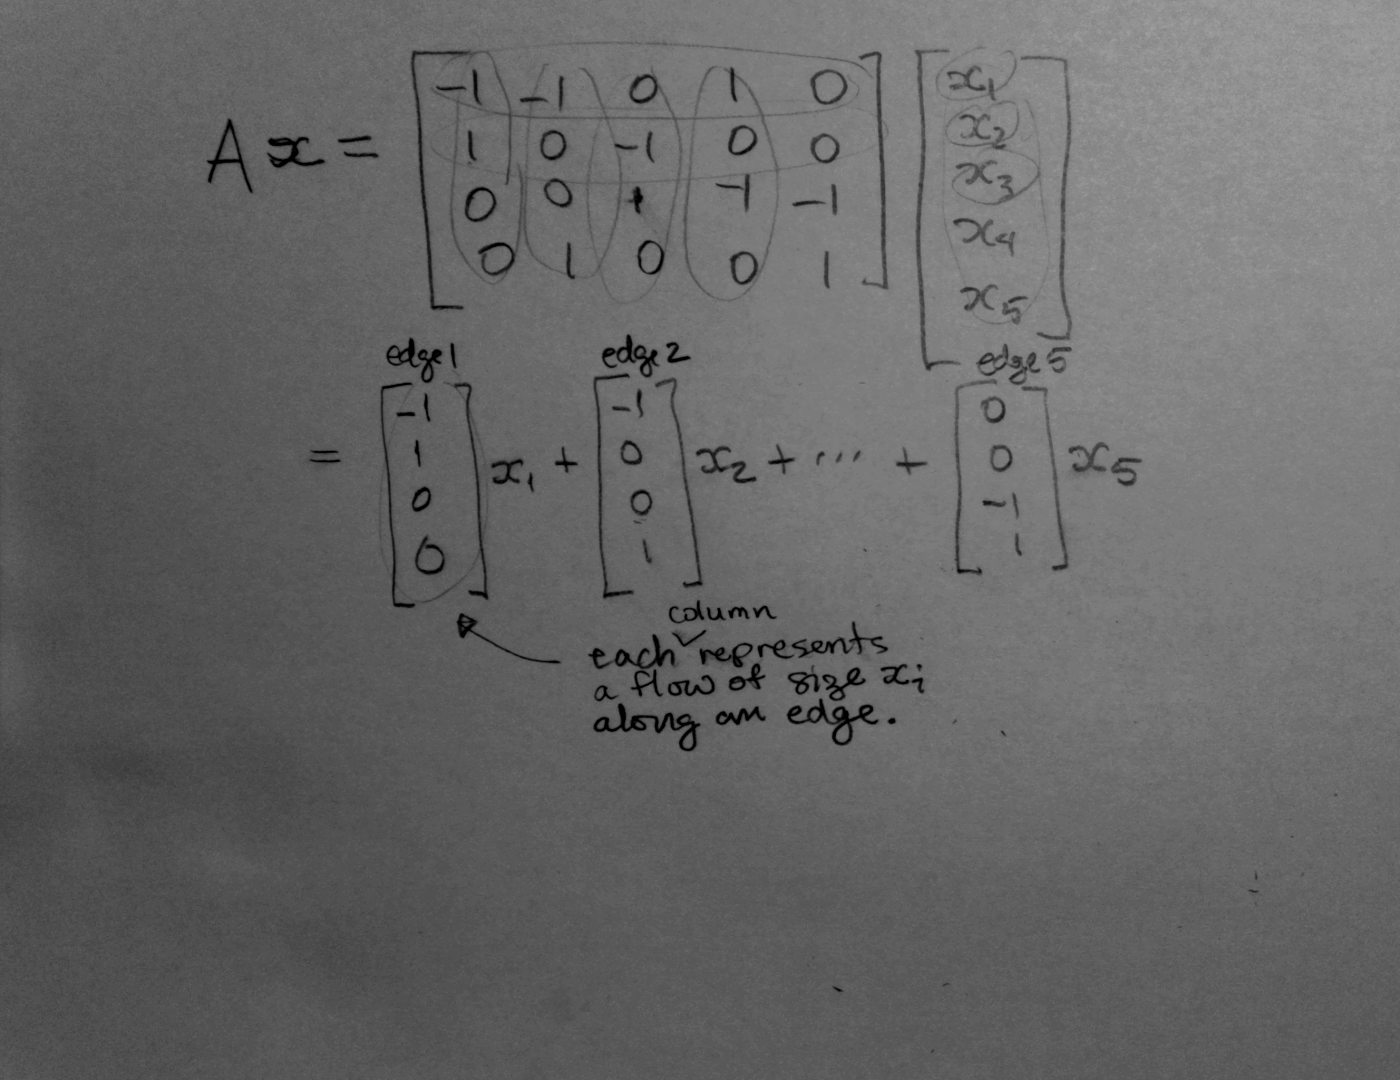 Ax = [ -1 -1 0 1 0 ] [ x1 ]
[ 1 0 -1 0 0 ] [ x2 ]
[ 0 0 1 -1 -1 ] [ x3 ]
[ 0 1 0 0 1 ] [ x4 ]
[ x5 ]
edge 1 edge 2 edge 5
= [ -1 1 0 0 ] x1 + [ -1 0 0 1 ] x2 + ... + [ 0 0 -1 1 ] x5
each column represents
a flow of size xi
along an edge.